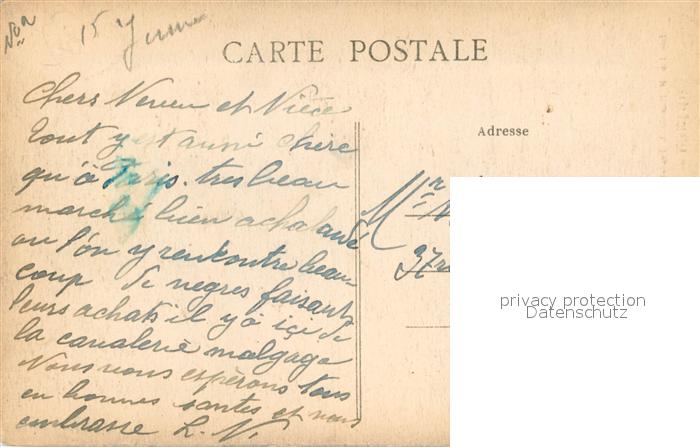 15 
CARTE POSTALE
Chers Neveu et Nièce
Tout y est aussi chère
qu'à Paris. tres beau
marché bien achalandé
ou l'on y rencontre beau-
coup de negres faisant
leurs achats il y à içi de
la cavalerie malgage
Nous vous espèrons tous
en bonnes santes et vous
embrasse L. V.
Adresse
Mr
37 r
privacy protection
Datenschutz